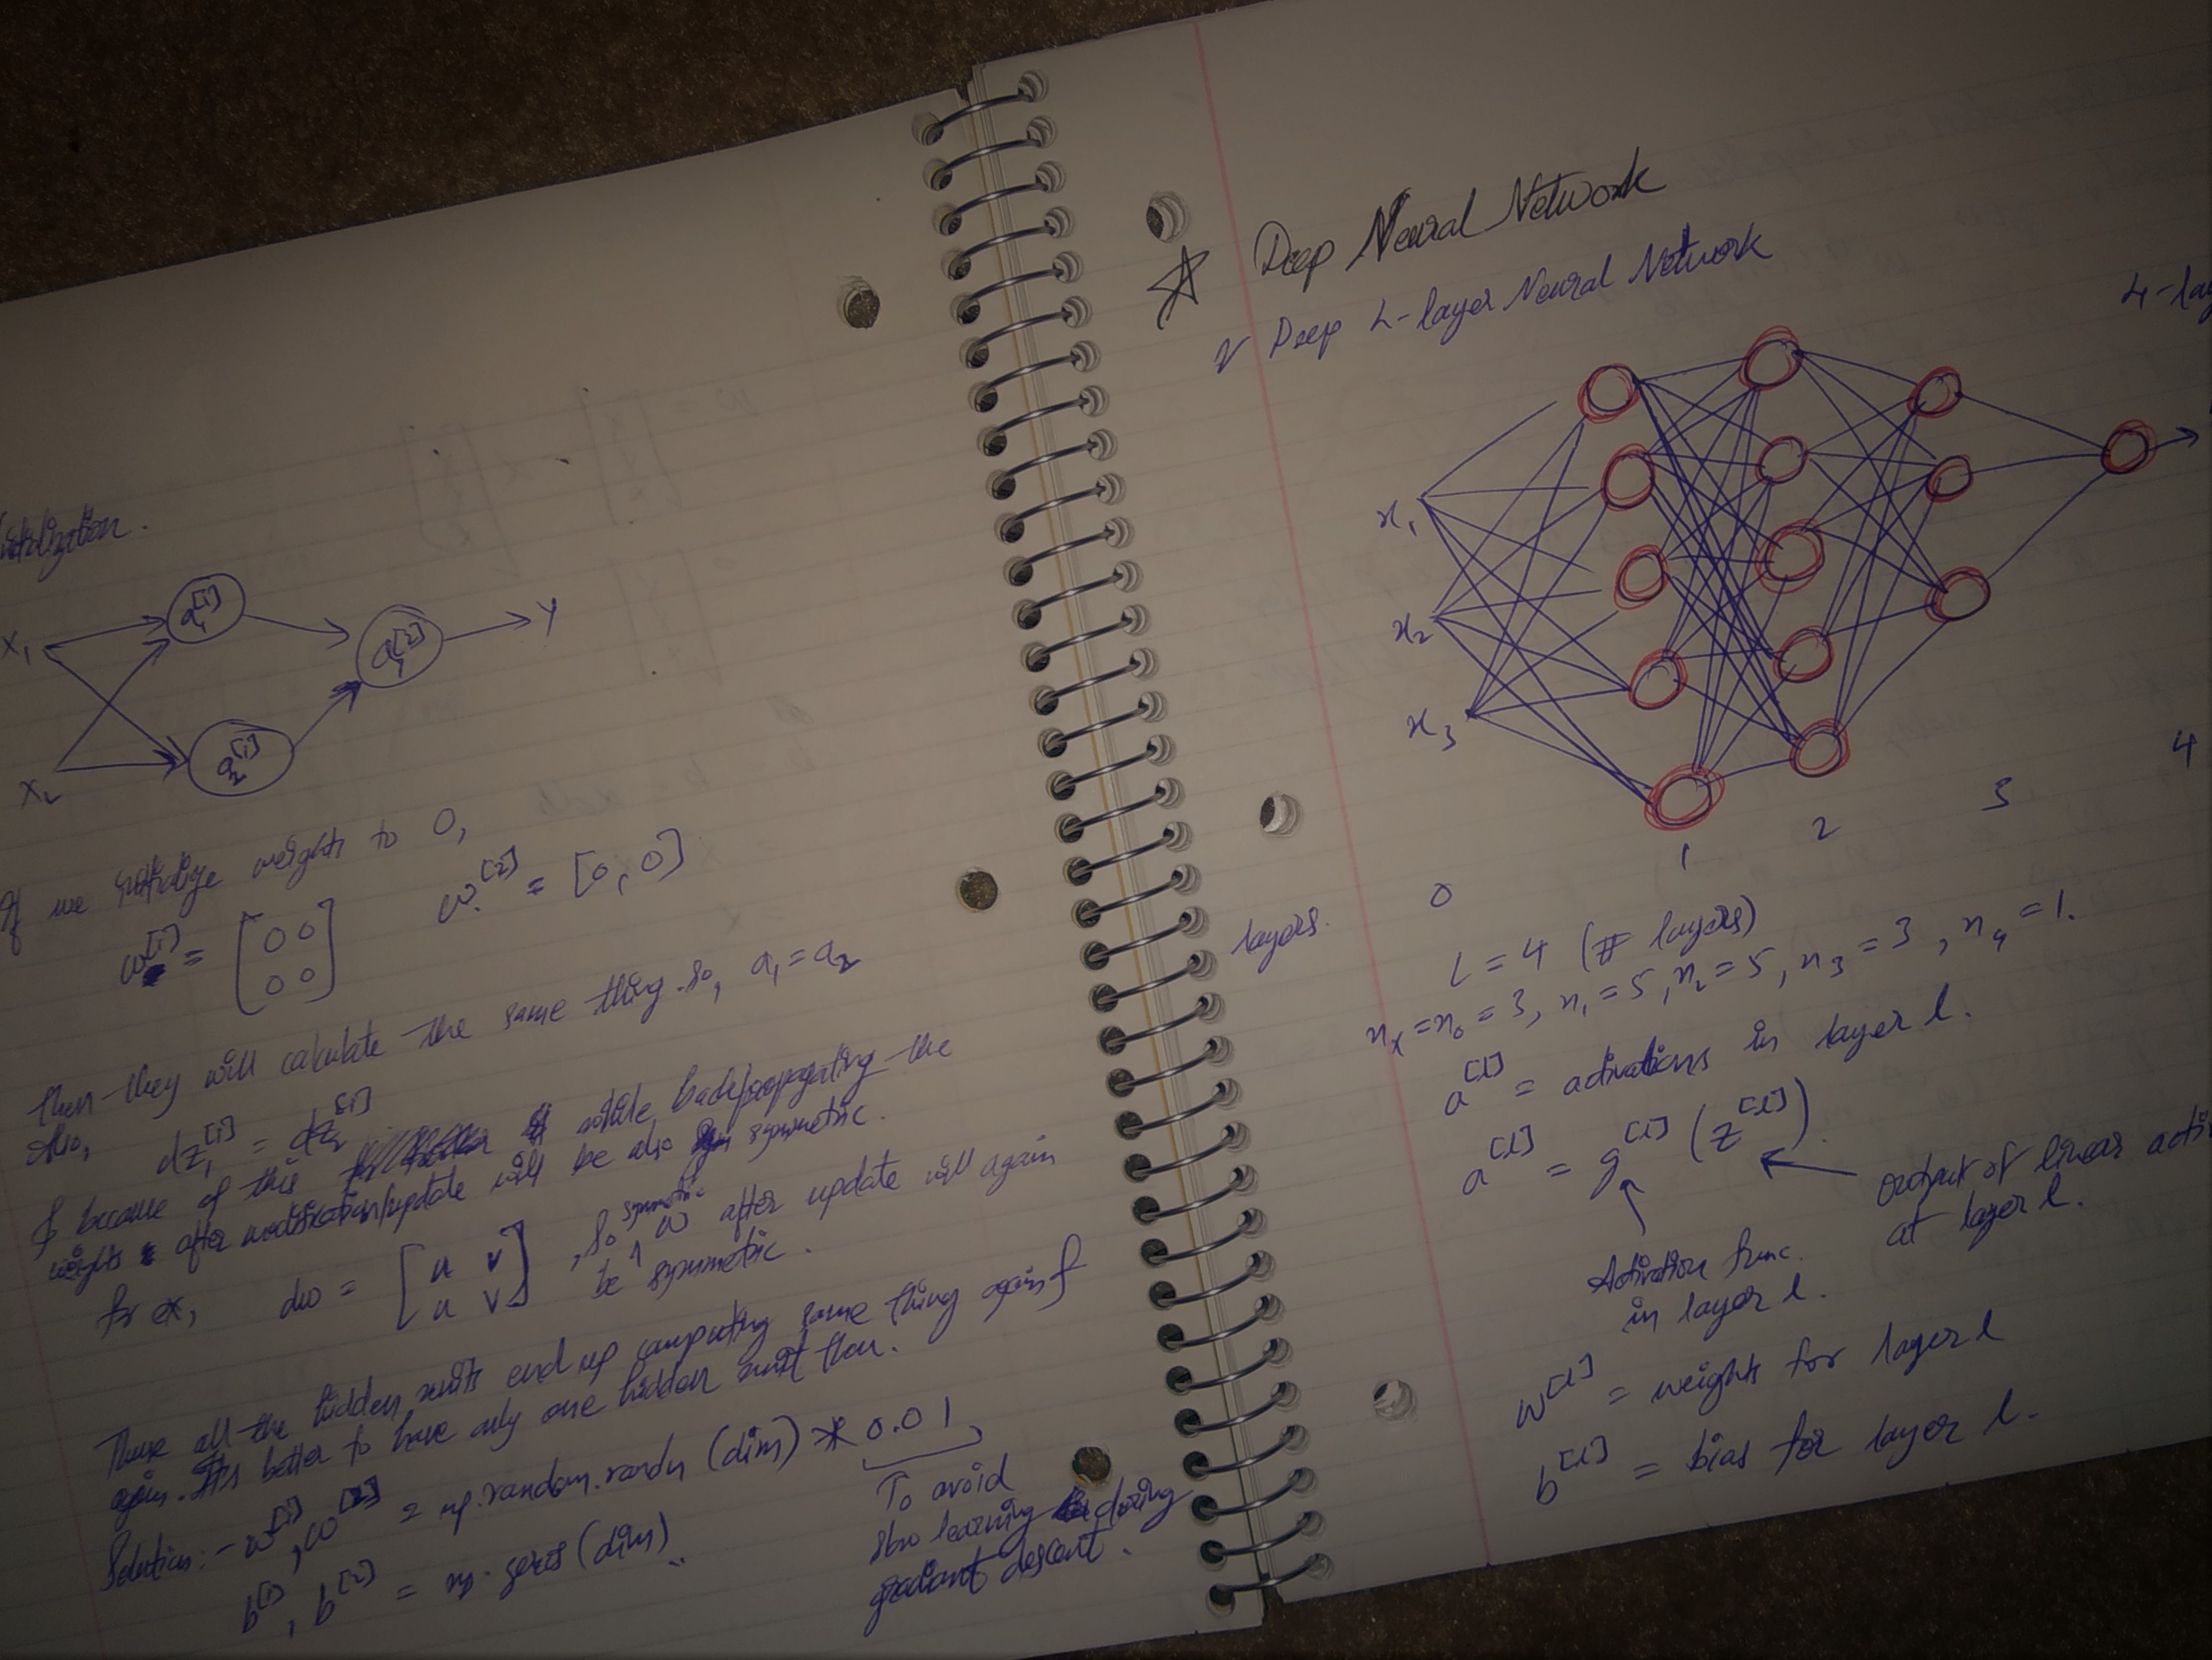 x₁
a₁^[1]
a₁^[2]
y
x₂
a₂^[1]
If we initialize weights to 0,
w^[1] = [0 0
0 0]
w^[2] = [0, 0]
Then they will calculate the same thing. So, a₁ = a₂
Also, dz₁^[1] = dz₂^[1]
& because of this while backpropagating the
weights after modification/update will be also symmetric.
for ex, dw = [u v
u v]
, so symmetric w after update will again
be symmetric.
Thus all the hidden units end up computing same thing again &
again. It's better to have only one hidden unit then.
Solution:- w^[1], w^[2] = np.random.randn (dim) * 0.01
b^[1], b^[2] = np.zeros (dim)
To avoid
slow learning during
gradient descent.
☆ Deep Neural Network
Deep L-layer Neural Network
x₁
x₂
x₃
layers. 0 1 2 3 4
L = 4 (# layers)
n_x = n₀ = 3, n₁ = 5, n₂ = 5, n₃ = 3, n₄ = 1.
a^[l] = activations in layer l.
a^[l] = g^[l] (z^[l])
output of linear
at layer l.
Activation func.
in layer l.
W^[l] = weights for layer l
b^[l] = bias for layer l.